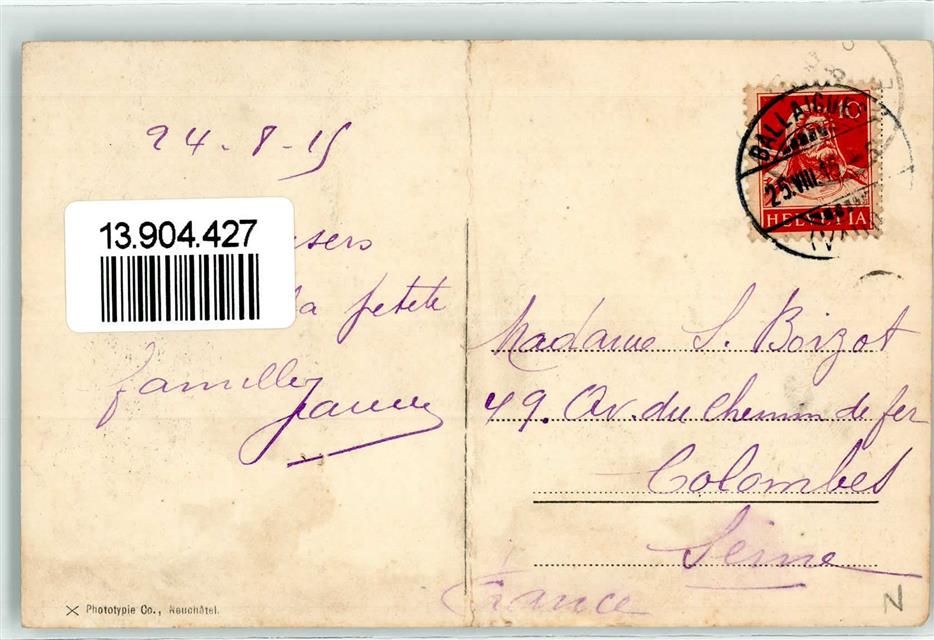 24-8-15
13.904.427
la petite
famille
Jeanne
Phototypie Co., Neuchâtel.
10
BALLAIGUES
25.VIII.15
HELVETIA
Madame S. Boizot
49. Av. du Chemin de fer
Colombes
Seine
France
N